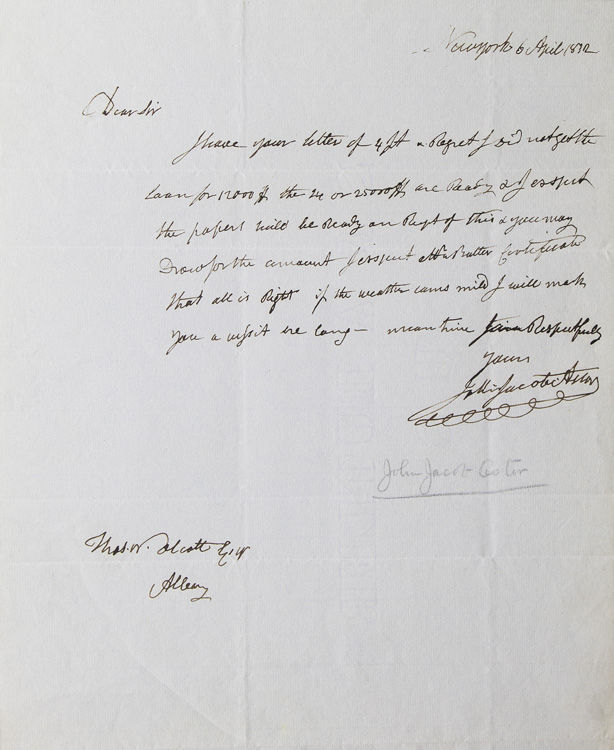 Newyork 6 April 1832
Dear Sir
I have your letter of 4 & Regret I did not get the
Loan for 12000 $ the 24 or 25000 $ are Ready & I exspect
the papers will be Ready on Rept of this & you may
Draw for the amount I exspect Mr Butler Certificate
that all is Right if the weather cams mild I will mak
you a visit ere long — meantime I am Respectfully
yours
John Jacob Astor
John Jacob Astor
Thos. W. Olcott Esqr
Albany